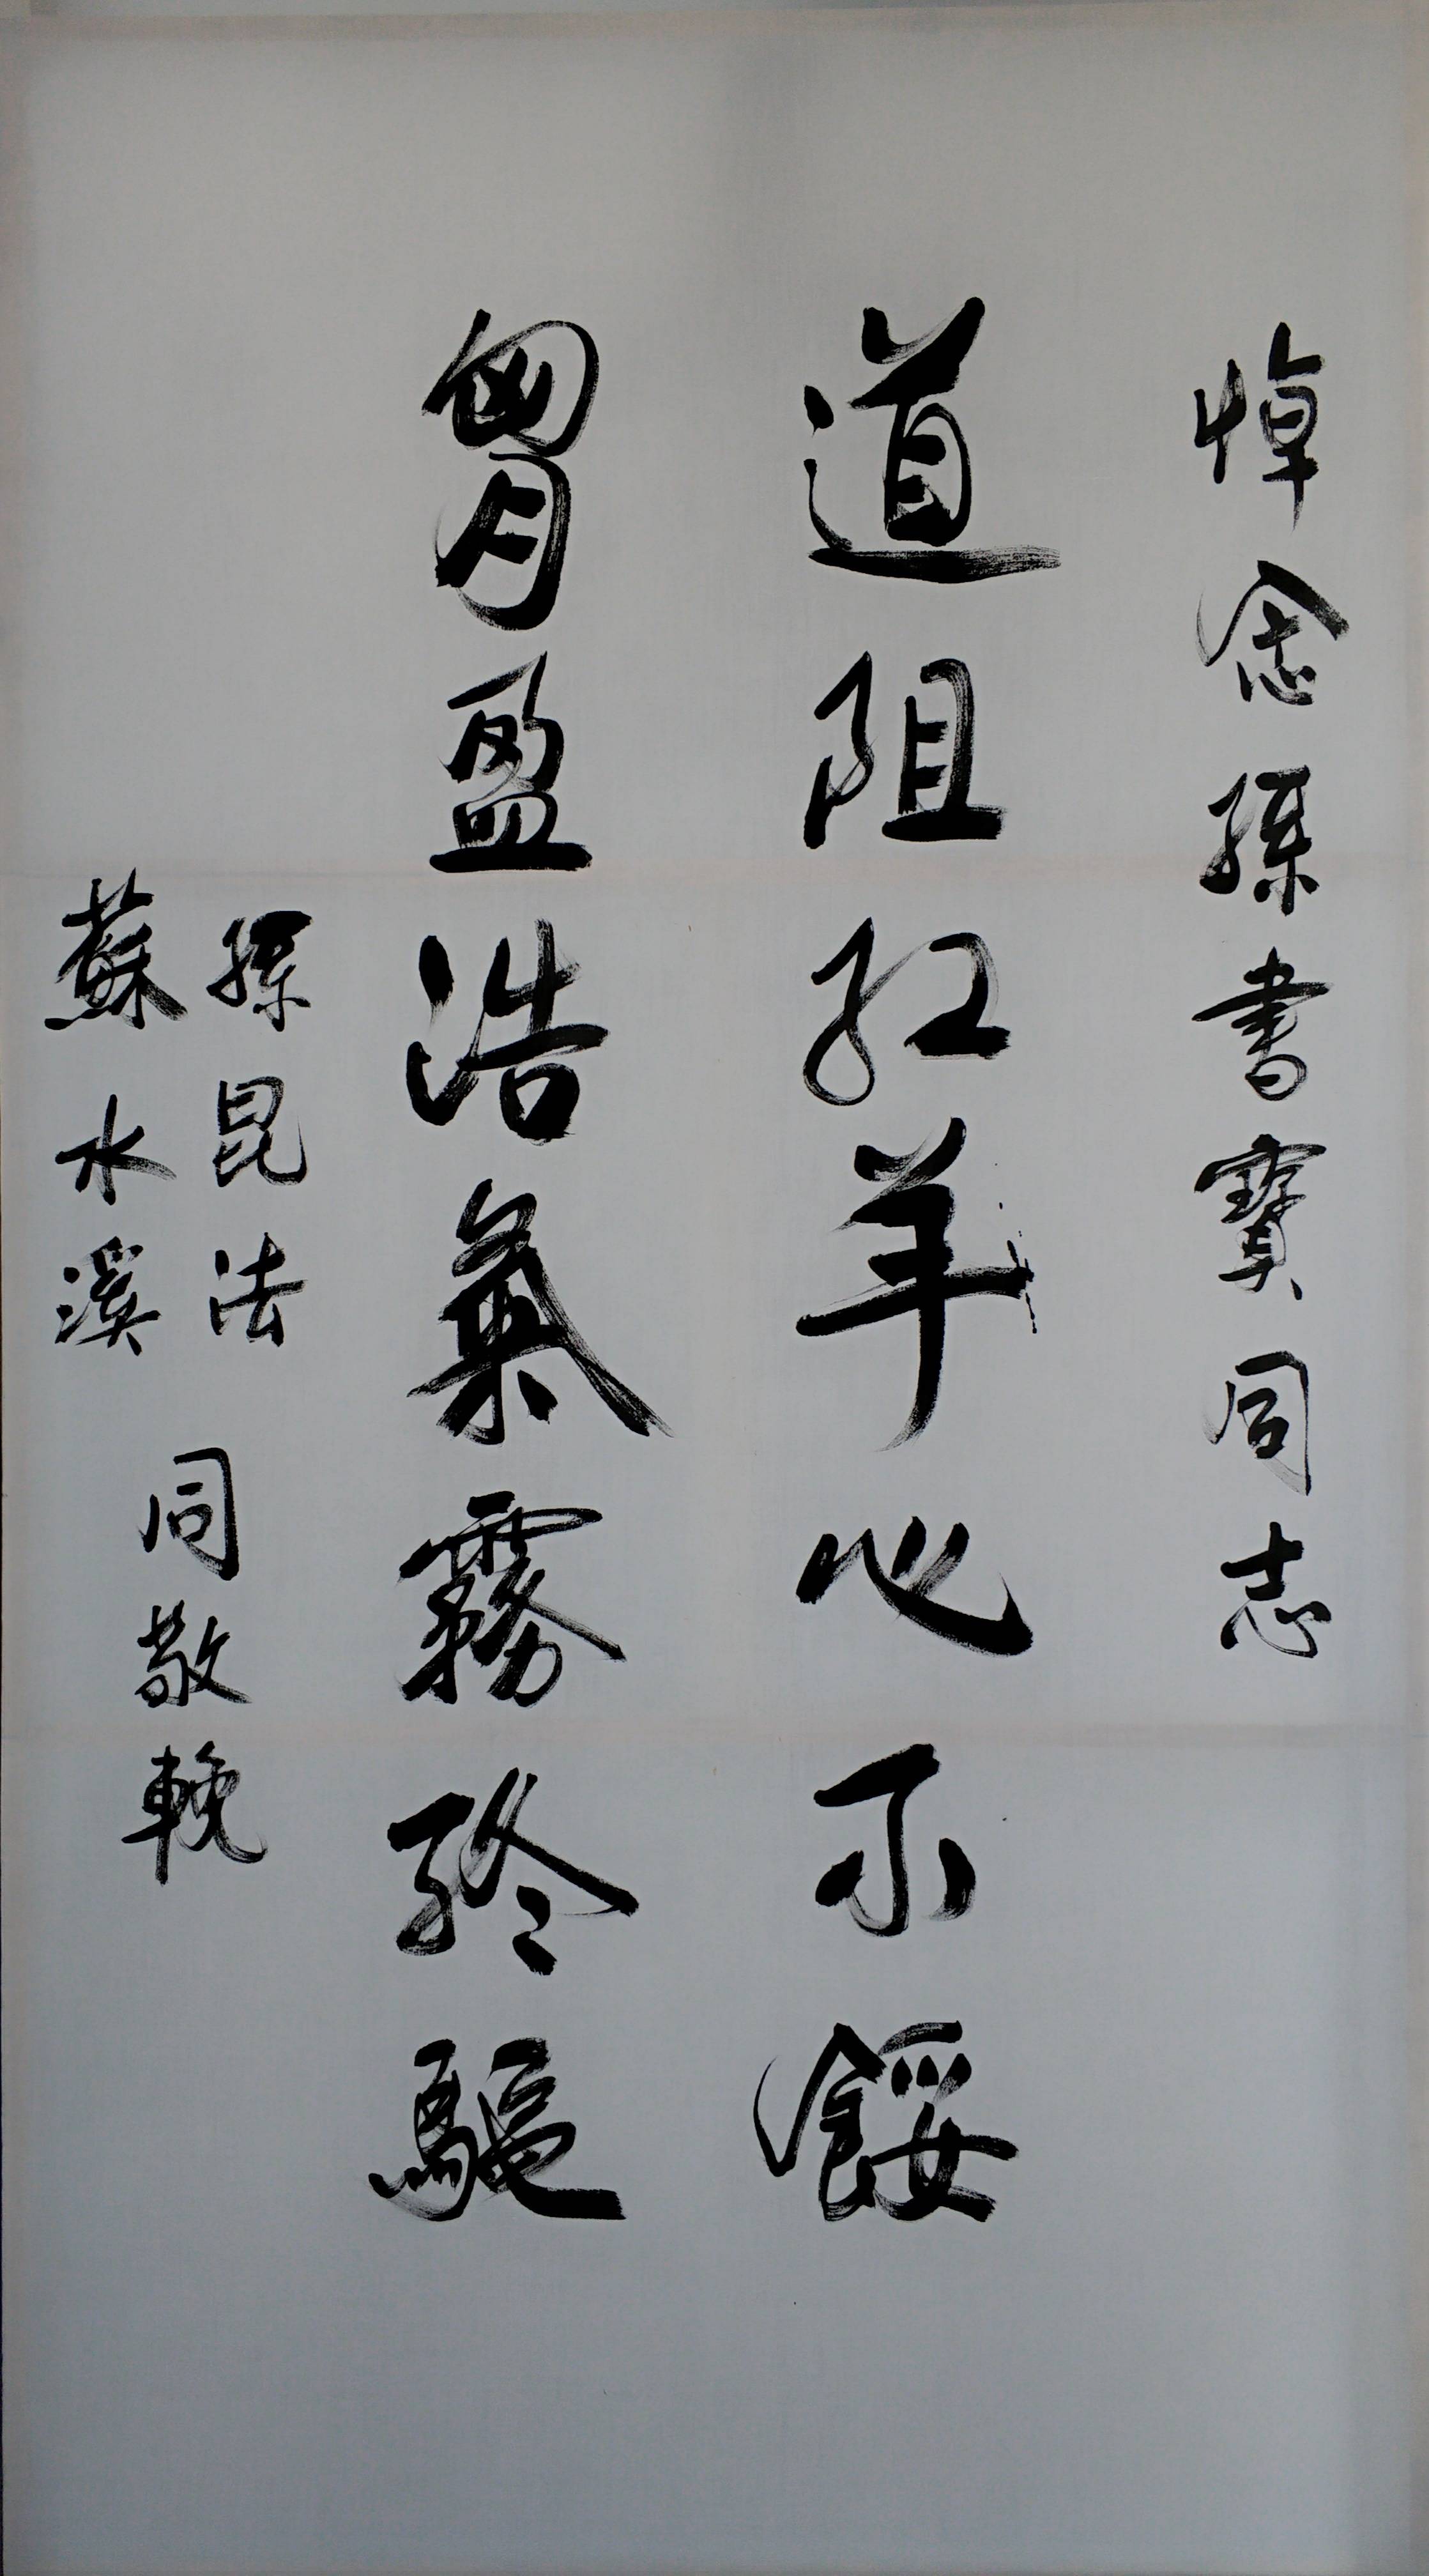 悼念孫書寶同志
道阻紅羊心不餒
胷盈浩氣霧終驅
孫昆法
蘇水溪
同敬輓